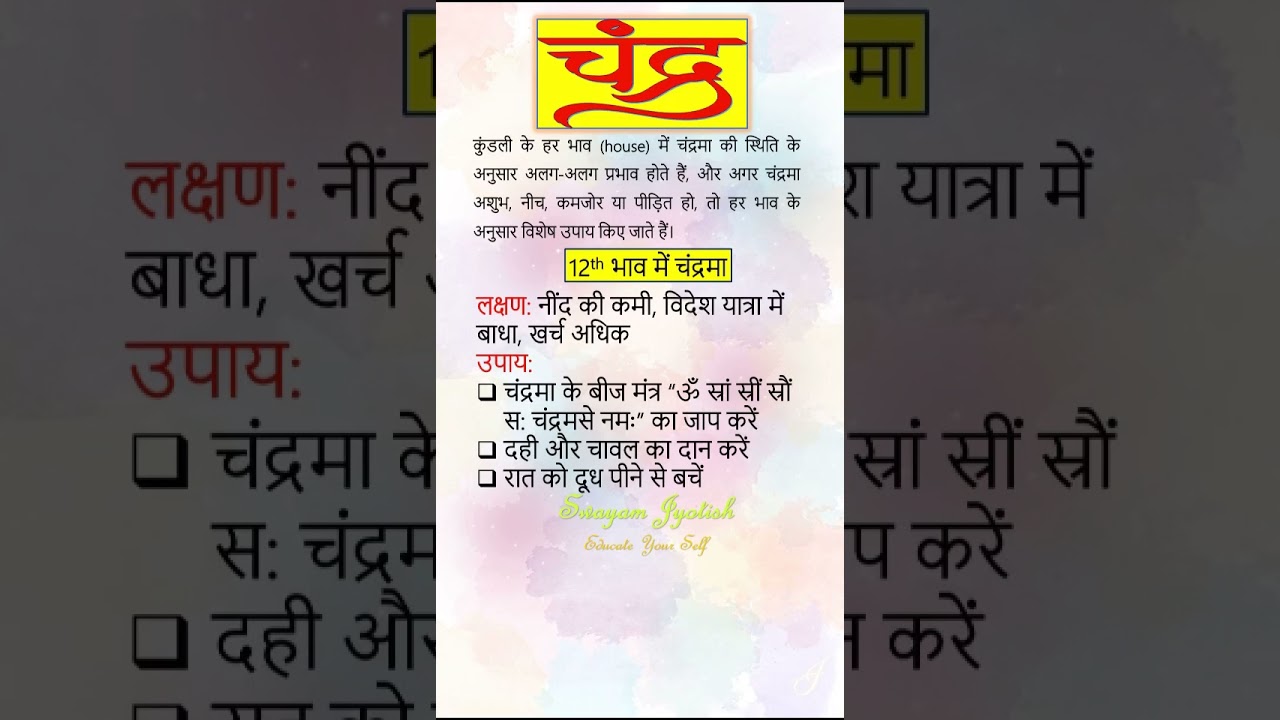 चंद्र
कुंडली के हर भाव (house) में चंद्रमा की स्थिति के
अनुसार अलग-अलग प्रभाव होते हैं, और अगर चंद्रमा
अशुभ, नीच, कमजोर या पीड़ित हो, तो हर भाव के
अनुसार विशेष उपाय किए जाते हैं।
12th भाव में चंद्रमा
लक्षण: नींद की कमी, विदेश यात्रा में
बाधा, खर्च अधिक
उपाय:
❑ चंद्रमा के बीज मंत्र “ॐ स्रां स्रीं स्रौं
स: चंद्रमसे नमः” का जाप करें
❑ दही और चावल का दान करें
❑ रात को दूध पीने से बचें
Swayam Jyotish
Educate Your Self